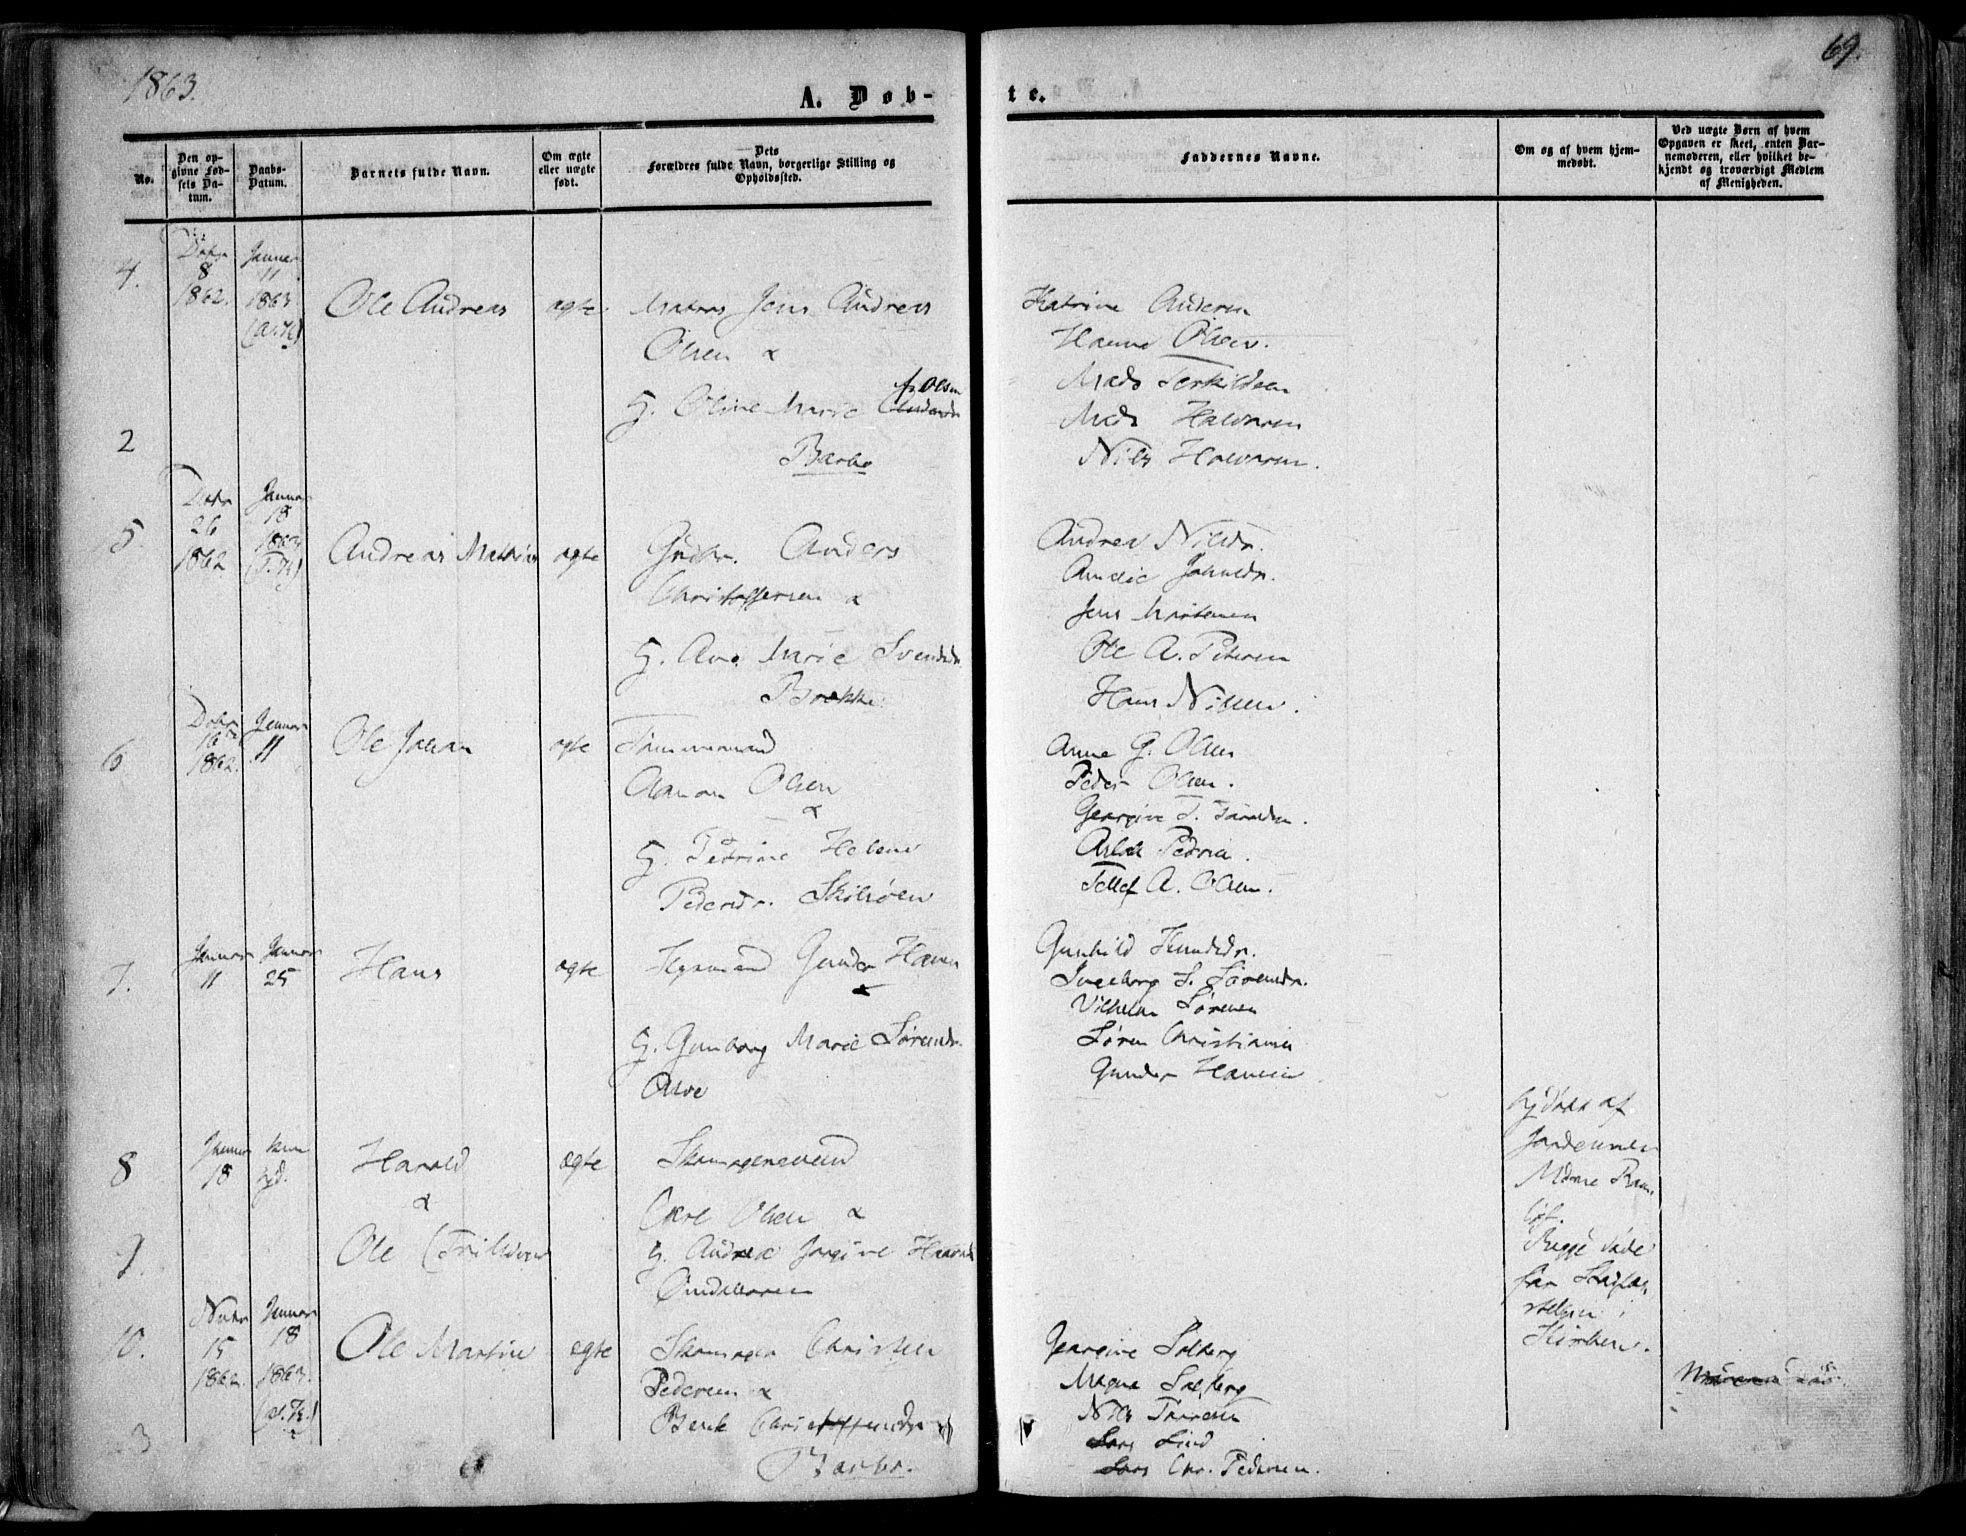 1863.
69.
A. Døb-
te.
No.
Den op-
givne Fød-
sels Da-
tum.
Daabs-
Datum.
Barnets fulde Navn.
Om ægte
eller uægte
født.
Dets
Forældres fulde Navn, borgerlige Stilling og
Opholdssted.
Faddernes Navne.
Om og af hvem hjem-
medøbt.
Ved uægte Børn af hvem
Opgaven er skeet, enten Bar-
nemoderen, eller hvilket be-
kjendt og troværdigt Medlem
af Menigheden.
4.
8
1862.
Januar
11
1863
Ole Andreas
ægte
Matros Jens Andreas
Olsen &
G. Oline Marie
Olsen
Barbo
Katrine Andersen
Hanne Olsen.
Mads Terkildsen
Mads Halvorsen
Nils Halvorsen.
2
5
26
1862
Januar
18
1863
Andreas Mathias
ægte
Anders
Christoffersen &
G. Ane Marie Svendsdr
Brække
Andrea Nilsdr.
Amalie Johnsdr.
Jens Mortensen
Ole A. Petersen
Hans Nilsen.
6
16
1862.
Januar
11
Ole Johan
ægte
Tømmermand
Aanon Olsen
&
G. Petrine Helene
Pedersdr. Skilsøen
Anne G. Olsen
Peder Olsen.
Georgine T.
Aslak Pedersen.
Tellef A. Olsen.
7.
Januar
11
Januar
25
Hans
ægte
Gunder Hansen
&
G. Gunborg Marie Sørensdr.
Alve
Gunhild Knudsdr.
Ingeborg S. Sørensdr.
Vilhelm Sørensen
Søren Christiansen
Gunder Hansen
8
Januar
18
kun
hjd.
Harald
&
ægte
Carl Olsen &
G. Andrea Jorgine
hjdøbt af
Jordemoder
Begge døde
før
i
Kirken.
9.
Ole
10.
15
1862.
Januar
18
1863.
Ole Martin
ægte
Skomager Christen
Pedersen &
Berte Christoffersdr
Barbo.
Georgine Solberg
Magne Solberg
Nils
Lars Lind
Lars Chr. Pedersen.
3